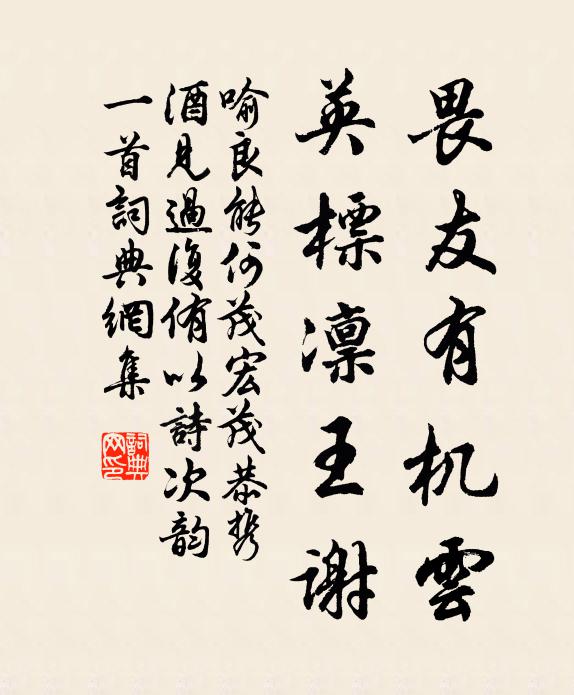 畏友有机雲
英標凛王謝
喻良能何茂宏茂恭携
酒見過復侑以詩次韵
一首詞典網集
詞典网印